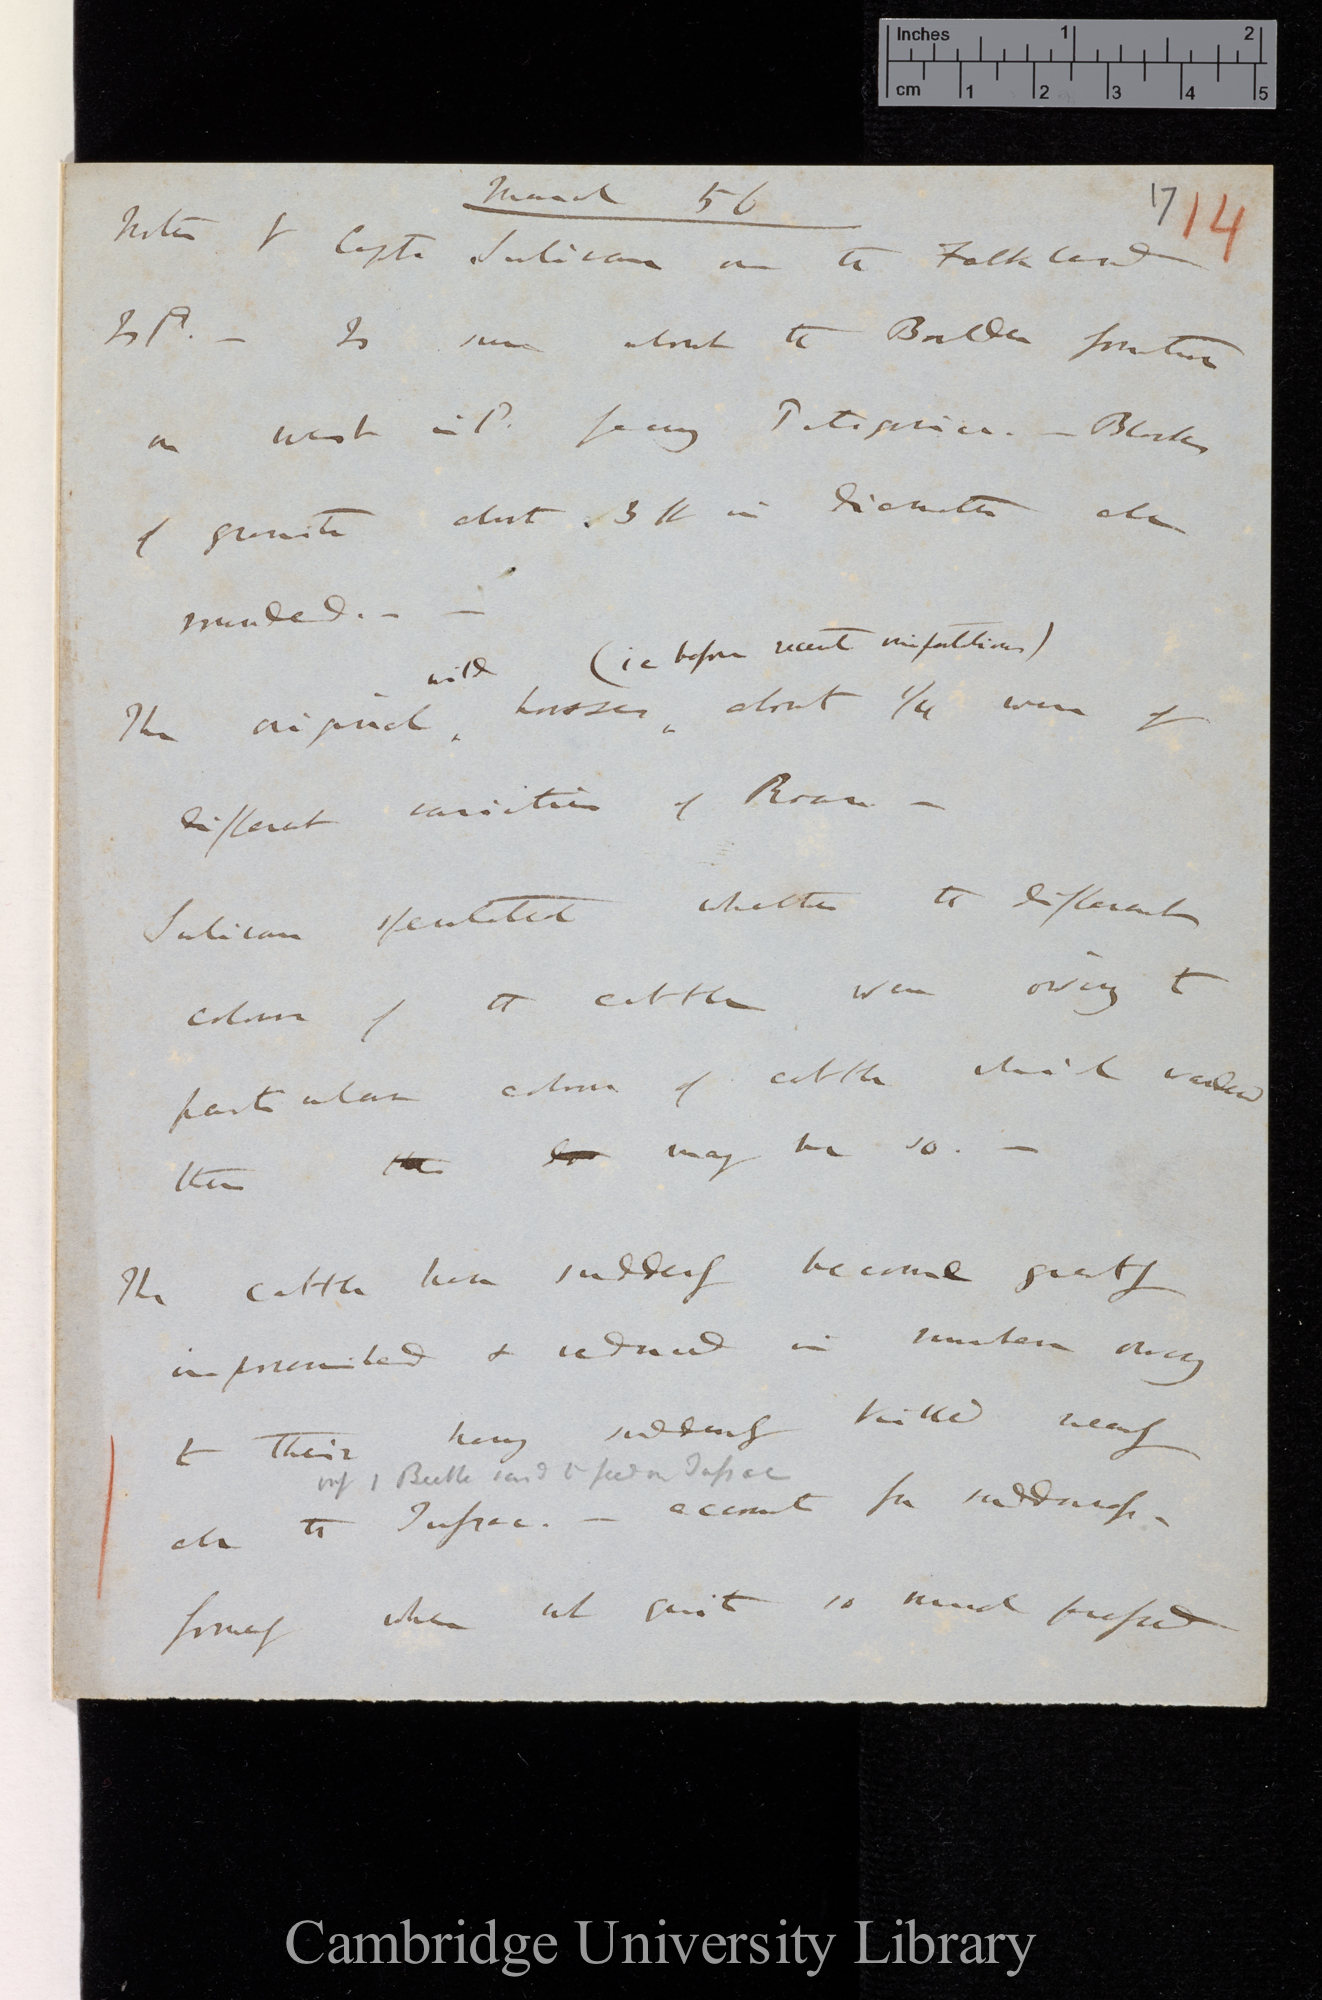 Inches 1 2
cm 1 2 3 4 5
March 56
17 14
Notes of Capt. Sulivan on the Falkland
Isd. — Is sure about the Boulder formation
on west isld. facing Patagonia. — Blocks
of granite about 3 ft in diameter also
rounded. — —
wild (ie before recent importations)
The original ‸ horses ‸ about 1/4 were of
different varieties of Roan —
Sulivan speculated whether the different
colour of the cattle were owing to
particular colour of cattle which
then the may be so. —
The cattle have suddenly become greatly
impoverished & reduced in numbers owing
to their having suddenly killed nearly
1 Beetle said to feed on Tussac
all the Tussac. — account for suddenness —
when all quite so much